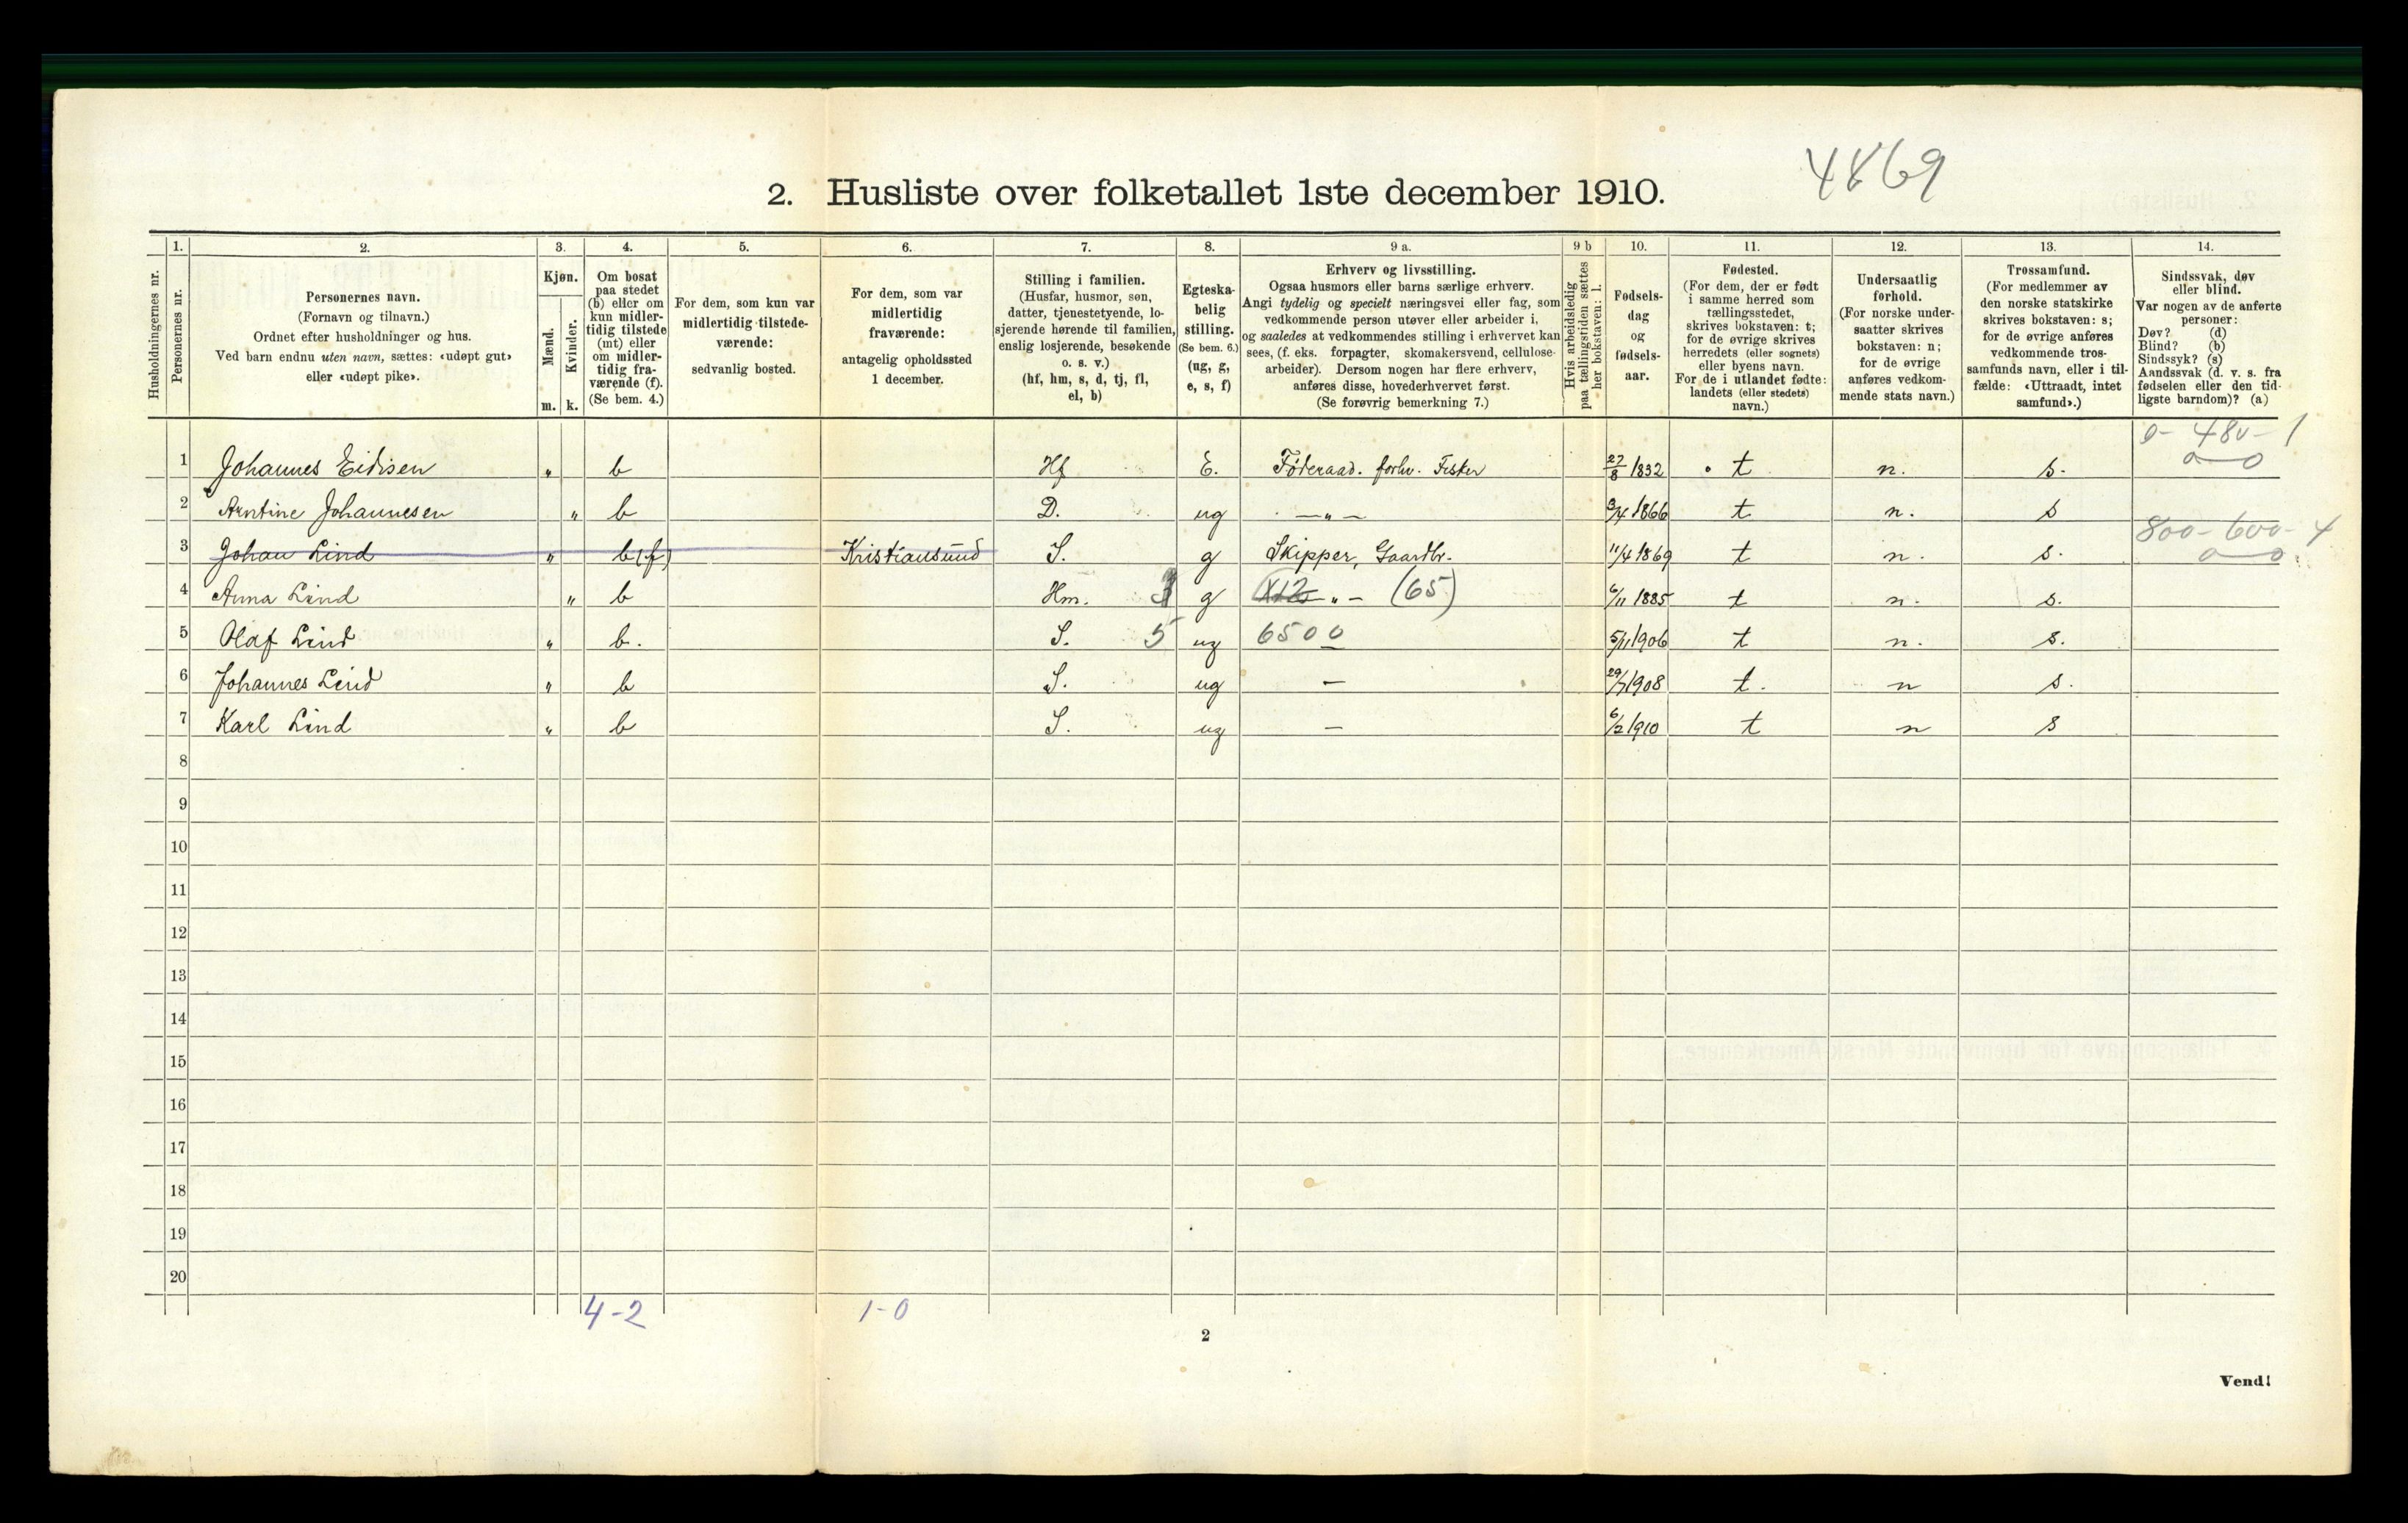 4869
2. Husliste over folketallet 1ste december 1910.
Husholdningernes nr.
1.
Personernes nr.
2.
Personernes navn.
(Fornavn og tilnavn.)
Ordnet efter husholdninger og hus.
Ved barn endnu uten navn, sættes: «udøpt gut»
eller «udøpt pike».
3.
Kjøn.
Mænd.
Kvinder.
m. k.
4.
Om bosat
paa stedet
(b) eller om
kun midler-
tidig tilstede
(mt) eller
om midler-
tidig fra-
værende (f).
(Se bem. 4.)
5.
For dem, som kun var
midlertidig tilstede-
værende:
sedvanlig bosted.
6.
For dem, som var
midlertidig
fraværende:
antagelig opholdssted
1 december.
7.
Stilling i familien.
(Husfar, husmor, søn,
datter, tjenestetyende, lo-
sjerende hørende til familien,
enslig losjerende, besøkende
o. s. v.)
(hf, hm, s, d, tj, fl,
el, b)
8.
Egteska-
belig
stilling.
(Se bem. 6.)
(ug, g,
e, s, f)
9 a.
Erhverv og livsstilling.
Ogsaa husmors eller barns særlige erhverv.
Angi tydelig og specielt næringsvei eller fag, som
vedkommende person utøver eller arbeider i,
og saaledes at vedkommendes stilling i erhvervet kan
sees, (f. eks. forpagter, skomakersvend, cellulose-
arbeider). Dersom nogen har flere erhverv,
anføres disse, hovederhvervet først.
(Se forøvrig bemerkning 7.)
9 b
Hvis arbeidsledig
paa tællingstiden sættes
her bokstaven: l.
10.
Fødsels-
dag
og
fødsels-
aar.
11.
Fødested.
(For dem, der er født
i samme herred som
tællingsstedet,
skrives bokstaven: t;
for de øvrige skrives
herredets (eller sognets)
eller byens navn.
For de i utlandet fødte:
landets (eller stedets)
navn.)
12.
Undersaatlig
forhold.
(For norske under-
saatter skrives
bokstaven: n;
for de øvrige
anføres vedkom-
mende stats navn.)
13.
Trossamfund.
(For medlemmer av
den norske statskirke
skrives bokstaven: s;
for de øvrige anføres
vedkommende tros-
samfunds navn, eller i til-
fælde: «Uttraadt, intet
samfund».)
14.
Sindssvak, døv
eller blind.
Var nogen av de anførte
personer:
Døv? (d)
Blind? (b)
Sindssyk? (s)
Aandssvak (d. v. s. fra
fødselen eller den tid-
ligste barndom)? (a)
0- 480- 1
1 Johannes Eidisen " b Hf E. Føderaad. forhv. Fisker 27/8 1832 t n. s. 0—0
2 Arntine Johannesen " b D. ug —"— 3/4 1866 t n. s
800- 600- 4
3 Johan Lind " b(f) Kristiansund S. g Skipper, Gaardbr. 11/4 1869 t n. s. 0—0
4 Anna Lind " b Hm. g X12 "— (65) 6/11 1885 t n. s.
5 Olaf Lind " b. S. 5 ug 6500 5/11 1906 t n. s.
6 Johannes Lind " b S. ug — 29/7 1908 t. n s.
7 Karl Lind " b S. ug — 6/2 1910 t n s
8
9
10
11
12
13
14
15
16
17
18
19
20
4-2 1-0
2
Vend!